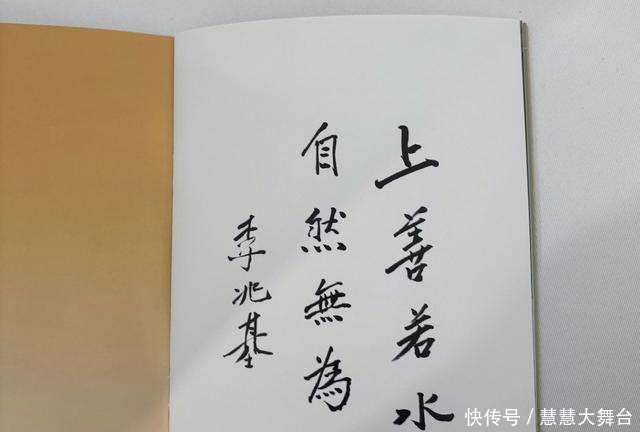 上善若水
自然無為
李兆基
快传号／慧慧大舞台